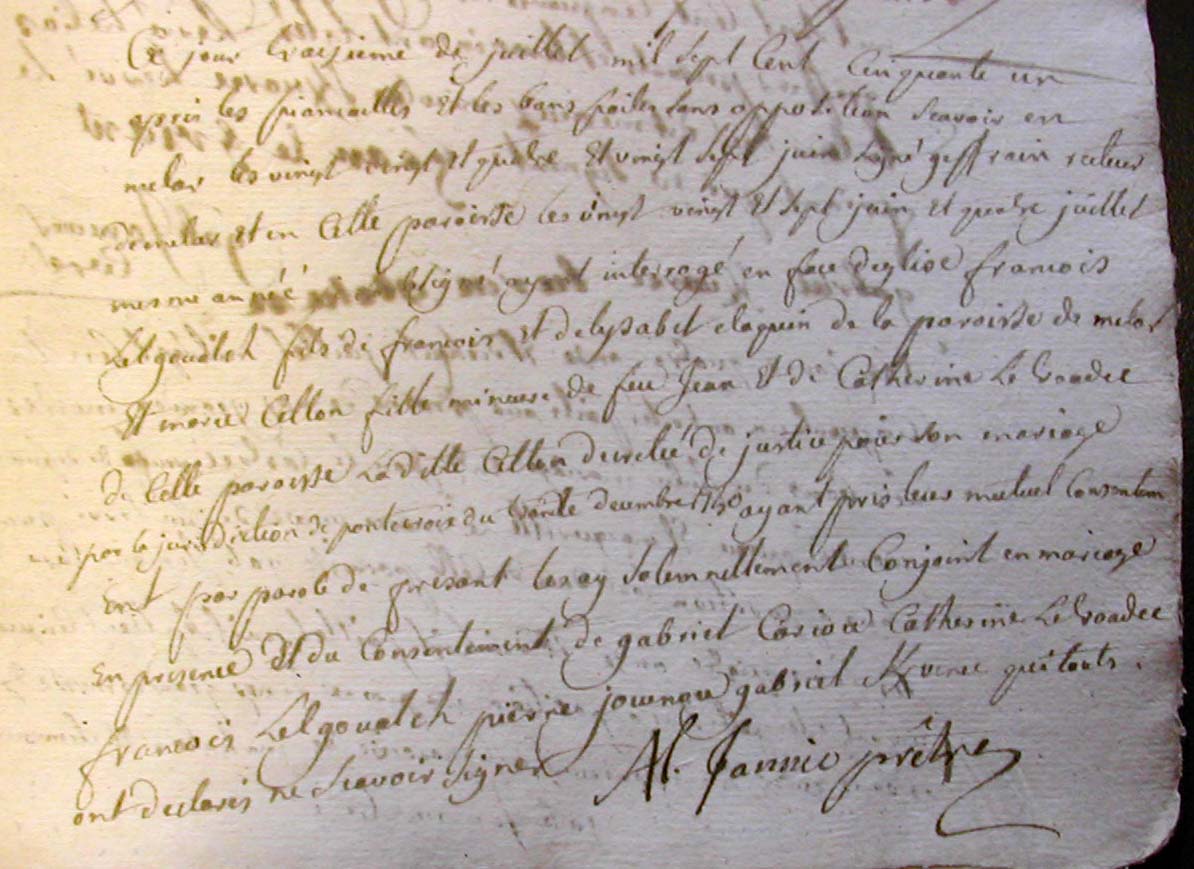 Ce jour traisieme de juillet mil sept cent cinquante un
apres les fiancailles et les bans faites sans opposition scavoir en
melar les vingt vingt et quatre et vingt sept juin signé recteur
de melar et en cette paroisse les vingt vingt et sept juin et quatre juillet
mesme année ayant interrogé en face deglise francois
Lelgoualch fils de francois et delysabet elaquin de la paroisse de melar
et marie Celton fille mineure de feu Jean et de Catherine Le Voadec
de cette paroisse Laditte Celton decretée de justice pour son mariage
par la jurisdiction de pontecroix du trante decembre 1750 ayant pris leur mutuel Consentem
ent par parole de present les ay solemnellement Conjoint en mariage
en presence et du Consentement de gabriel Cariou Catherine Le Voadec
francois Lelgoualch pierre jounnou gabriel qui touts
ont declarés ne scavoir signer M. Jannic prêtre